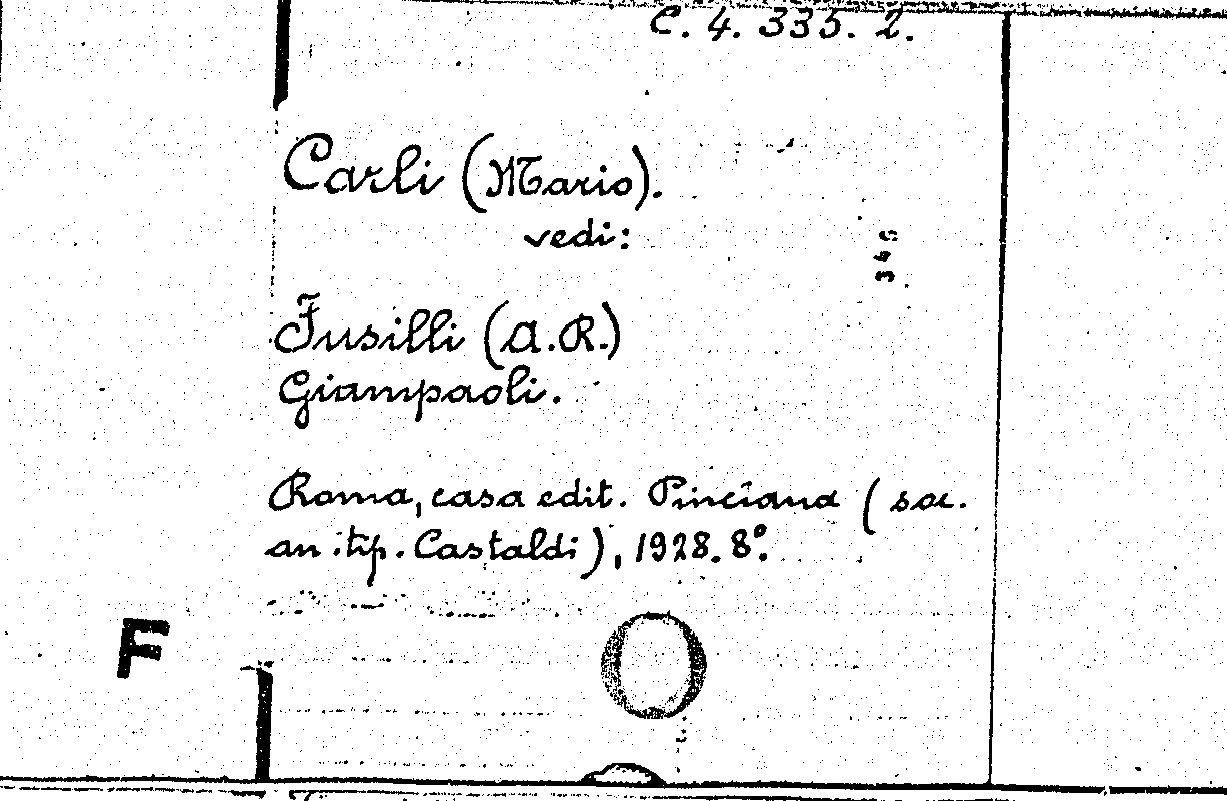 C. 4. 335. 2.
Carli (Mario).
vedi:
349
Fusilli (A.R.)
Giampaoli.
Roma, casa edit. Pinciana (soc.
an. tip. Castaldi), 1928. 8º.
F